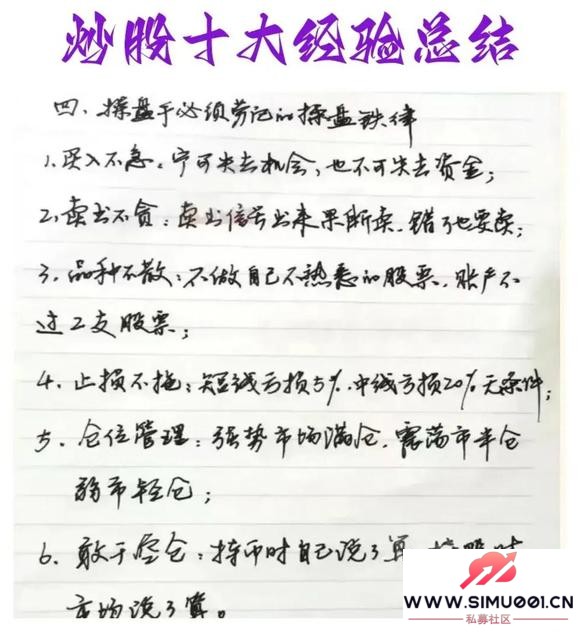 炒股十大经验总结
四、操盘手必须劳记的操盘铁律
1、买入不急：宁可失去机会，也不可失去资金；
2、卖出不贪：卖出信号出来果断卖，错了也要卖；
3、品种不散：不做自己不熟悉的股票，账户不
过2支股票；
4、止损不拖：短线亏损5%，中线亏损20%无条件；
5、仓位管理：强势市场满仓，震荡市半仓
弱市轻仓；
6、敢于空仓：持币时自己说了算，持股时
市场说了算。
WWW.SIMU001.CN
私募社区